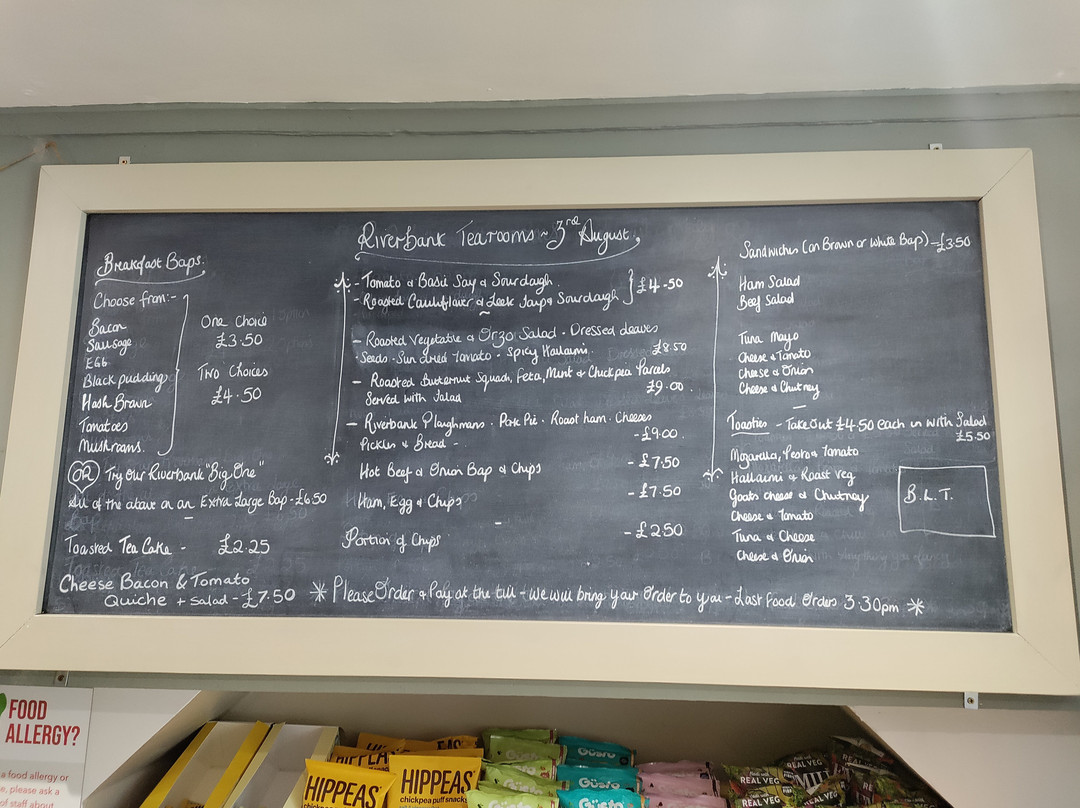 Riverbank Tearooms ~ 3rd August.
Breakfast Baps.
Choose from:-
Bacon
Sausage
Egg
Black pudding
Hash Brown
Tomatoes
Mushrooms.
One Choice
£3.50
Two Choices
£4.50
OR Try Our Riverbank "Big One"
All of the above on an Extra Large Bap - £6.50
Toasted Tea Cake - £2.25
Cheese Bacon & Tomato
Quiche + salad - £7.50
- Tomato & Basil Soup & Sourdough
- Roasted Cauliflower & Leek Soup & Sourdough } £4.50
- Roasted Vegetable & Orzo Salad - Dressed leaves
Seeds - Sun dried tomato - Spicy Halloumi. £8.50
- Roasted Butternut Squash, Feta, Mint & Chickpea Parcels
Served with Salad £9.00.
- Riverbank Ploughmans - Pork Pie - Roast ham - Cheeses
Pickles & Bread - - £9.00.
Hot Beef & Onion Bap & Chips - £7.50
Ham, Egg & Chips - £7.50
Portion of Chips - £2.50
Sandwiches (on Brown or White Bap) - £3.50
Ham Salad
Beef Salad
Tuna Mayo
Cheese & Tomato
Cheese & Onion
Cheese & Chutney
Toasties - Take Out £4.50 each in with Salad
£5.50
Mozarella, Pesto & Tomato
Halloumi & Roast Veg
Goats cheese & Chutney
Cheese & Tomato
Tuna & Cheese
Cheese & Onion
B.L.T.
* Please Order & Pay at the till - we will bring your Order to you - Last Food Orders 3.30pm *
FOOD
ALLERGY?
a food allergy or
e, please ask a
of staff about
HIPPEAS
HIPPEAS
chickpea puff snacks
Güsto
Güsto
Güsto
REAL VEG
REAL VEG
REAL VEG
REAL VEG